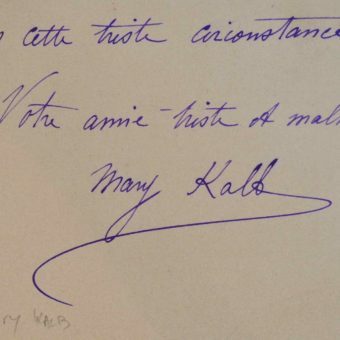 cette triste circonstance
Votre amie triste et mal
Mary Kalb